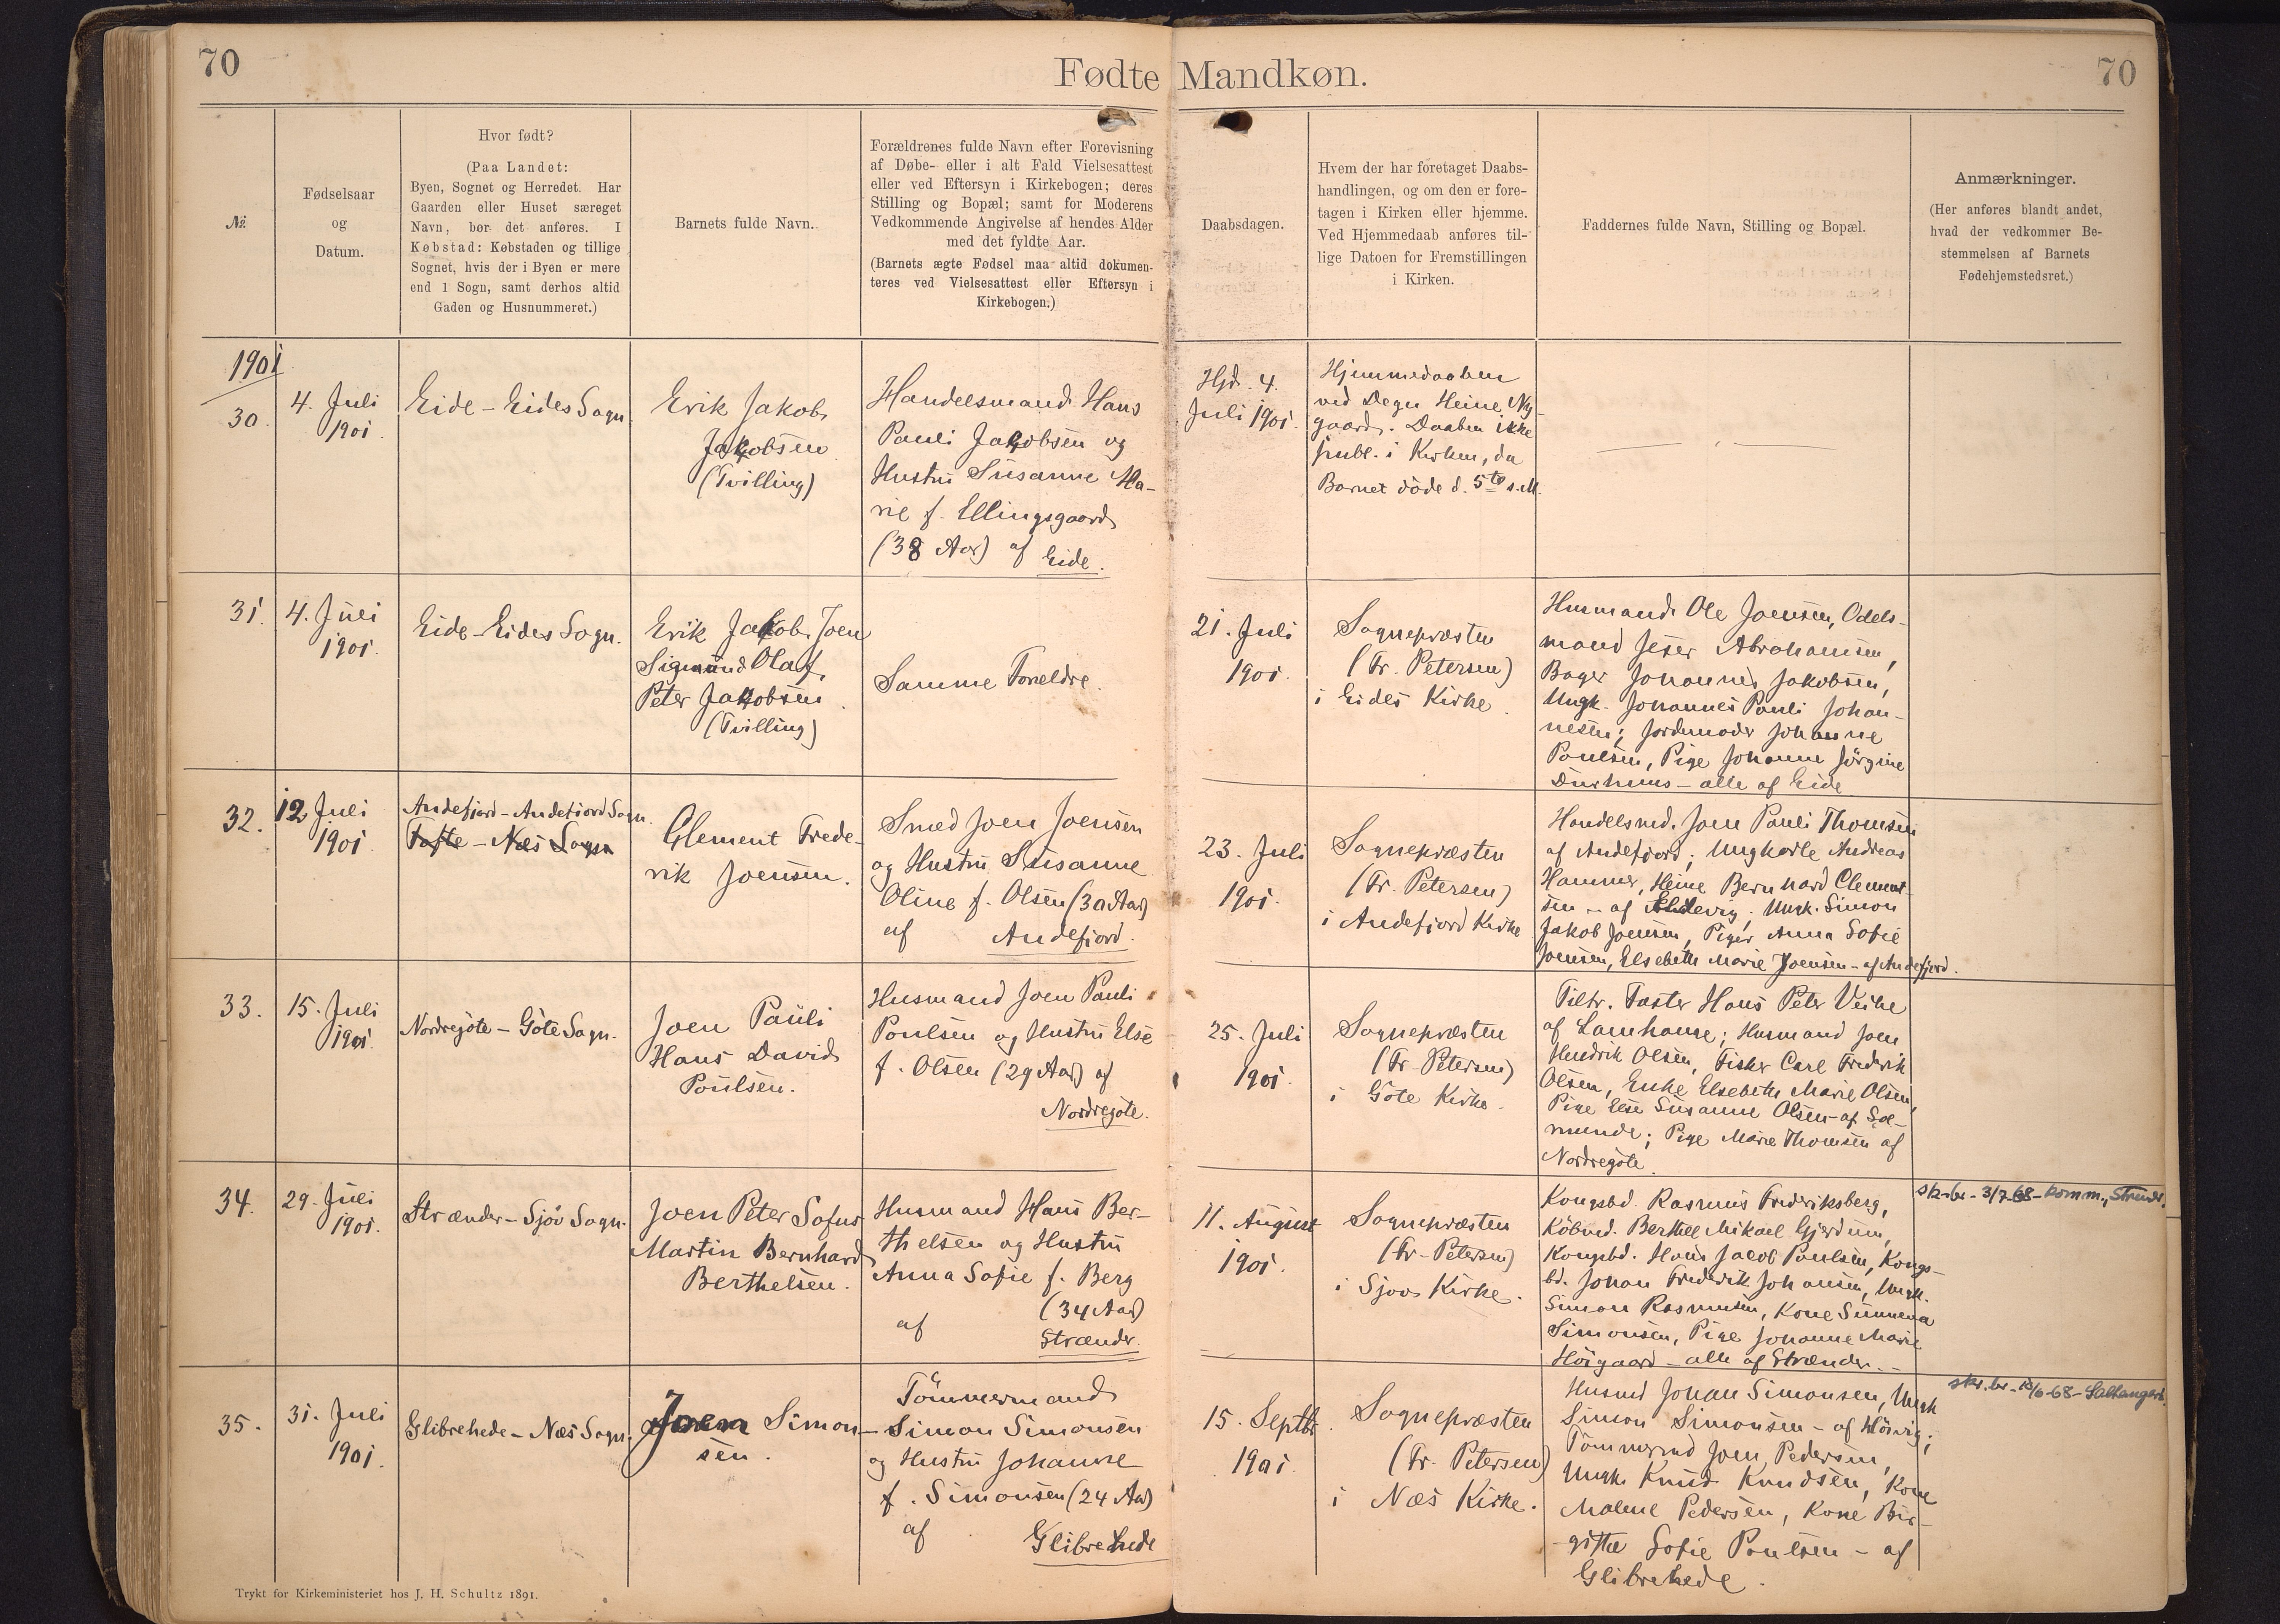 70
Fødte Mandkøn.
70
№.
Fødselsaar
og
Datum.
Hvor født?
(Paa Landet:
Byen, Sognet og Herredet. Har
Gaarden eller Huset særeget
Navn, bør det anføres. I
Købstad: Købstaden og tillige
Sognet, hvis der i Byen er mere
end 1 Sogn, samt derhos altid
Gaden og Husnummeret.)
Barnets fulde Navn.
Forældrenes fulde Navn efter Forevisning
af Døbe- eller i alt Fald Vielsesattest
eller ved Eftersyn i Kirkebogen; deres
Stilling og Bopæl; samt for Moderens
Vedkommende Angivelse af hendes Alder
med det fyldte Aar.
(Barnets ægte Fødsel maa altid dokumen-
teres ved Vielsesattest eller Eftersyn i
Kirkebogen.)
Daabsdagen.
Hvem der har foretaget Daabs-
handlingen, og om den er fore-
tagen i Kirken eller hjemme.
Ved Hjemmedaab anføres til-
lige Datoen for Fremstillingen
i Kirken.
Faddernes fulde Navn, Stilling og Bopæl.
Anmærkninger.
(Her anføres blandt andet,
hvad der vedkommer Be-
stemmelsen af Barnets
Fødehjemstedsret.)
1901
30.
4. Juli
1901.
Eide - Eides Sogn.
Erik Jakob
Jakobsen
(Tvilling)
Handelsmand Hans
Pauli Jakobsen og
Hustru Susanne Ma-
rie f. Ellingsgaard
(38 Aar) af Eide.
Hjd. 4.
Juli 1901.
Hjemmedaaben
ved Degn Heine Ny-
gaard. Daaben ikke
publ. i Kirken, da
Barnet döde d. 5te s. M.
31.
4. Juli
1901.
Eide - Eides Sogn.
Erik Jakob Joen
Sigmund Olaf
Peter Jakobsen
(Tvilling)
Samme Forældre.
21. Juli
1901.
Sognepræsten
(Fr. Petersen)
i Eides Kirke.
Husmand Ole Joensen, Odels-
mand Jeser Abrahamsen,
Bager Johannes Jakobsen,
Ungk. Johannes Pauli Johan-
nesen; Jordemoder Johanne
Poulsen, Pige Johanne Jörgine
Durhuus - alle af Eide
32.
12. Juli
1901.
Andefjord - Andefjord Sogn.
Tofte - Næs Sogn
Clement Frede-
rik Joensen.
Smed Joen Joensen
og Hustru Susanne
Oline f. Olsen (30 Aar)
af Andefjord.
23. Juli
1901.
Sognepræsten
(Fr. Petersen)
i Andefjord Kirke
Handelsmd. Joen Pauli Thomsen
af Andefjord; Ungkarle Andreas
Hammer, Heine Bernhard Clement-
sen - af Eldevig; Ungk. Simon
Jakob Joensen, Piger Anna Sofie
Joensen, Elsebeth Marie Joensen - af Andefjord.
33.
15. Juli
1901.
Nordregöte - Göte Sogn.
Joen Pauli
Hans David
Poulsen.
Husmand Joen Pauli
Poulsen og Hustru Else
f. Olsen (29 Aar) af
Nordregöte.
25. Juli
1901.
Sognepræsten
(Fr. Petersen)
i Göte Kirke.
Tiltr. Faster Hans Peter Veihe
af Lamhauge; Husmand Joen
Hendrik Olsen, Fisker Carl Frederik
Olsen, Enke Elsebeth Marie Olsen,
Pige Else Susanne Olsen - af Sol-
munde; Pige Marie Thomsen af
Nordregöte.
34.
29. Juli
1901.
Strænder - Sjöv Sogn.
Joen Peter Sofus
Martin Bernhard
Berthelsen.
Husmand Hans Ber-
thelsen og Hustru
Anna Sofie f. Berg
(34 Aar)
af Strænder.
11. August
1901.
Sognepræsten
(Fr. Petersen)
i Sjovs Kirke.
Kongsbd. Rasmus Frederiksberg,
Köbmd. Berthel Mikael Gjerdum,
Kongsbd. Hans Jacob Poulsen, Kongs-
bd. Johan Frederik Johansen, Ungk.
Simon Rasmussen, Kone Sunneva
Simonsen, Pige Johanne Marie
Höigaard - alle af Strænder.
sk.br. - 3/7-68 - komm., Strendr.
35.
31. Juli
1901.
Glibrehede - Næs Sogn.
Joen Simon-
sen.
Tömmermand
Simon Simonsen
og Hustru Johanne
f. Simonsen (24 Aar)
af Glibrehede
15. Septbr.
1901.
Sognepræsten
(Fr. Petersen)
i Næs Kirke.
Husmd Johan Simonsen, Ungk
Simon Simonsen - af Höivig;
Tömmermd Joen Pedersen,
Ungk. Knud Knudsen, Kone
Malene Pedersen, Kone Bir-
gitte Sofie Poulsen - af
Glibrehede.
Trykt for Kirkeministeriet hos J. H. Schultz 1891.